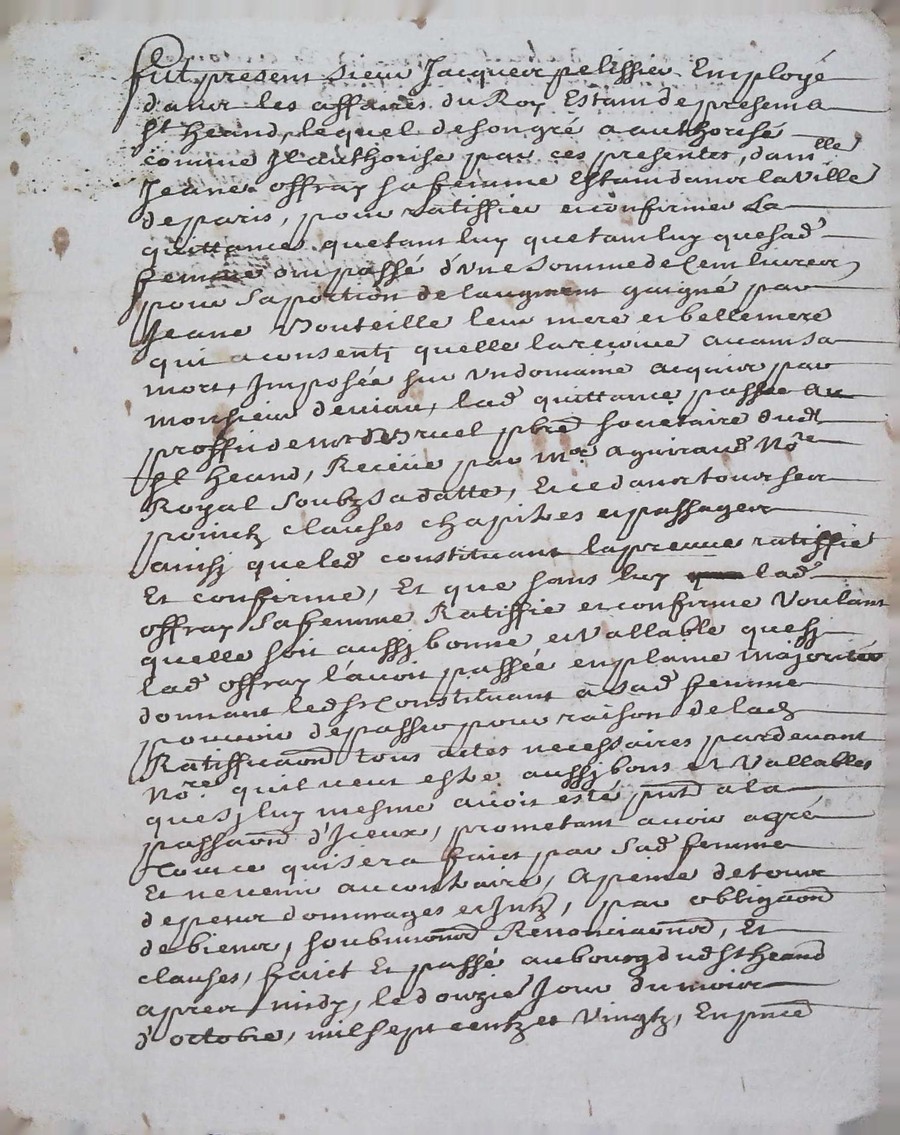 Fut present sieur Jacques pelissier Employé
dans les affaires du Roy Estant de present a
St heand, lequel de son gré a authorisé
comme Il authorise par ces presentes, damlle
Jeane offray sa femme Estant dans la Ville
de paris, pour ratiffier et confirmer La
quittance que tant luy que tant luy que sad'
femme ont passé d'une somme de Cent livres
pour sa portion de laugment gaigné par
Jeane Bouteille leur mere et belle mere
qui a consenty quelle la reçeive avant sa
mort, Imposée sur un domaine acquis par
monsieur deviau, lad' quittance passée au
proffit de mre Bruel pbre societaire dudt
St heand, Receüe par me aguiraud Nore
Royal Soubz sa datte, Et ce dans tous ses
pointz clauses chapitres et passages
ainsy que led' constituant la preuue ratiffie
Et confirme, Et que sans luy lad'
offray sa femme Ratiffie et confirme Voulant
quelle soit aussy bonne et vallable que sy
lad' offray l'avoit passée en plaine majorité
donnant led sr Constituant à sad' femme
pouvoir de passer pour raison de lad
Ratifficaõn tous actes necessaires pardevant
Nore quil veut estre aussy bons et Vallables
que sy luy mesme avoit esté pñt a la
passaõn d'Iceux, prometant avoir agré
Tout ce qui sera fait par sad' femme
Et ne venir au contraire, A peine de tous
despens dommages et Intz, par obligaõn
de biens, soubmissions Renonciaõns, Et
clauses, faict Et passé au bourg dud St heand
apres midy, le douzie' Jour du mois
d'octobre, mil sept centz et Vingtz, En pñce